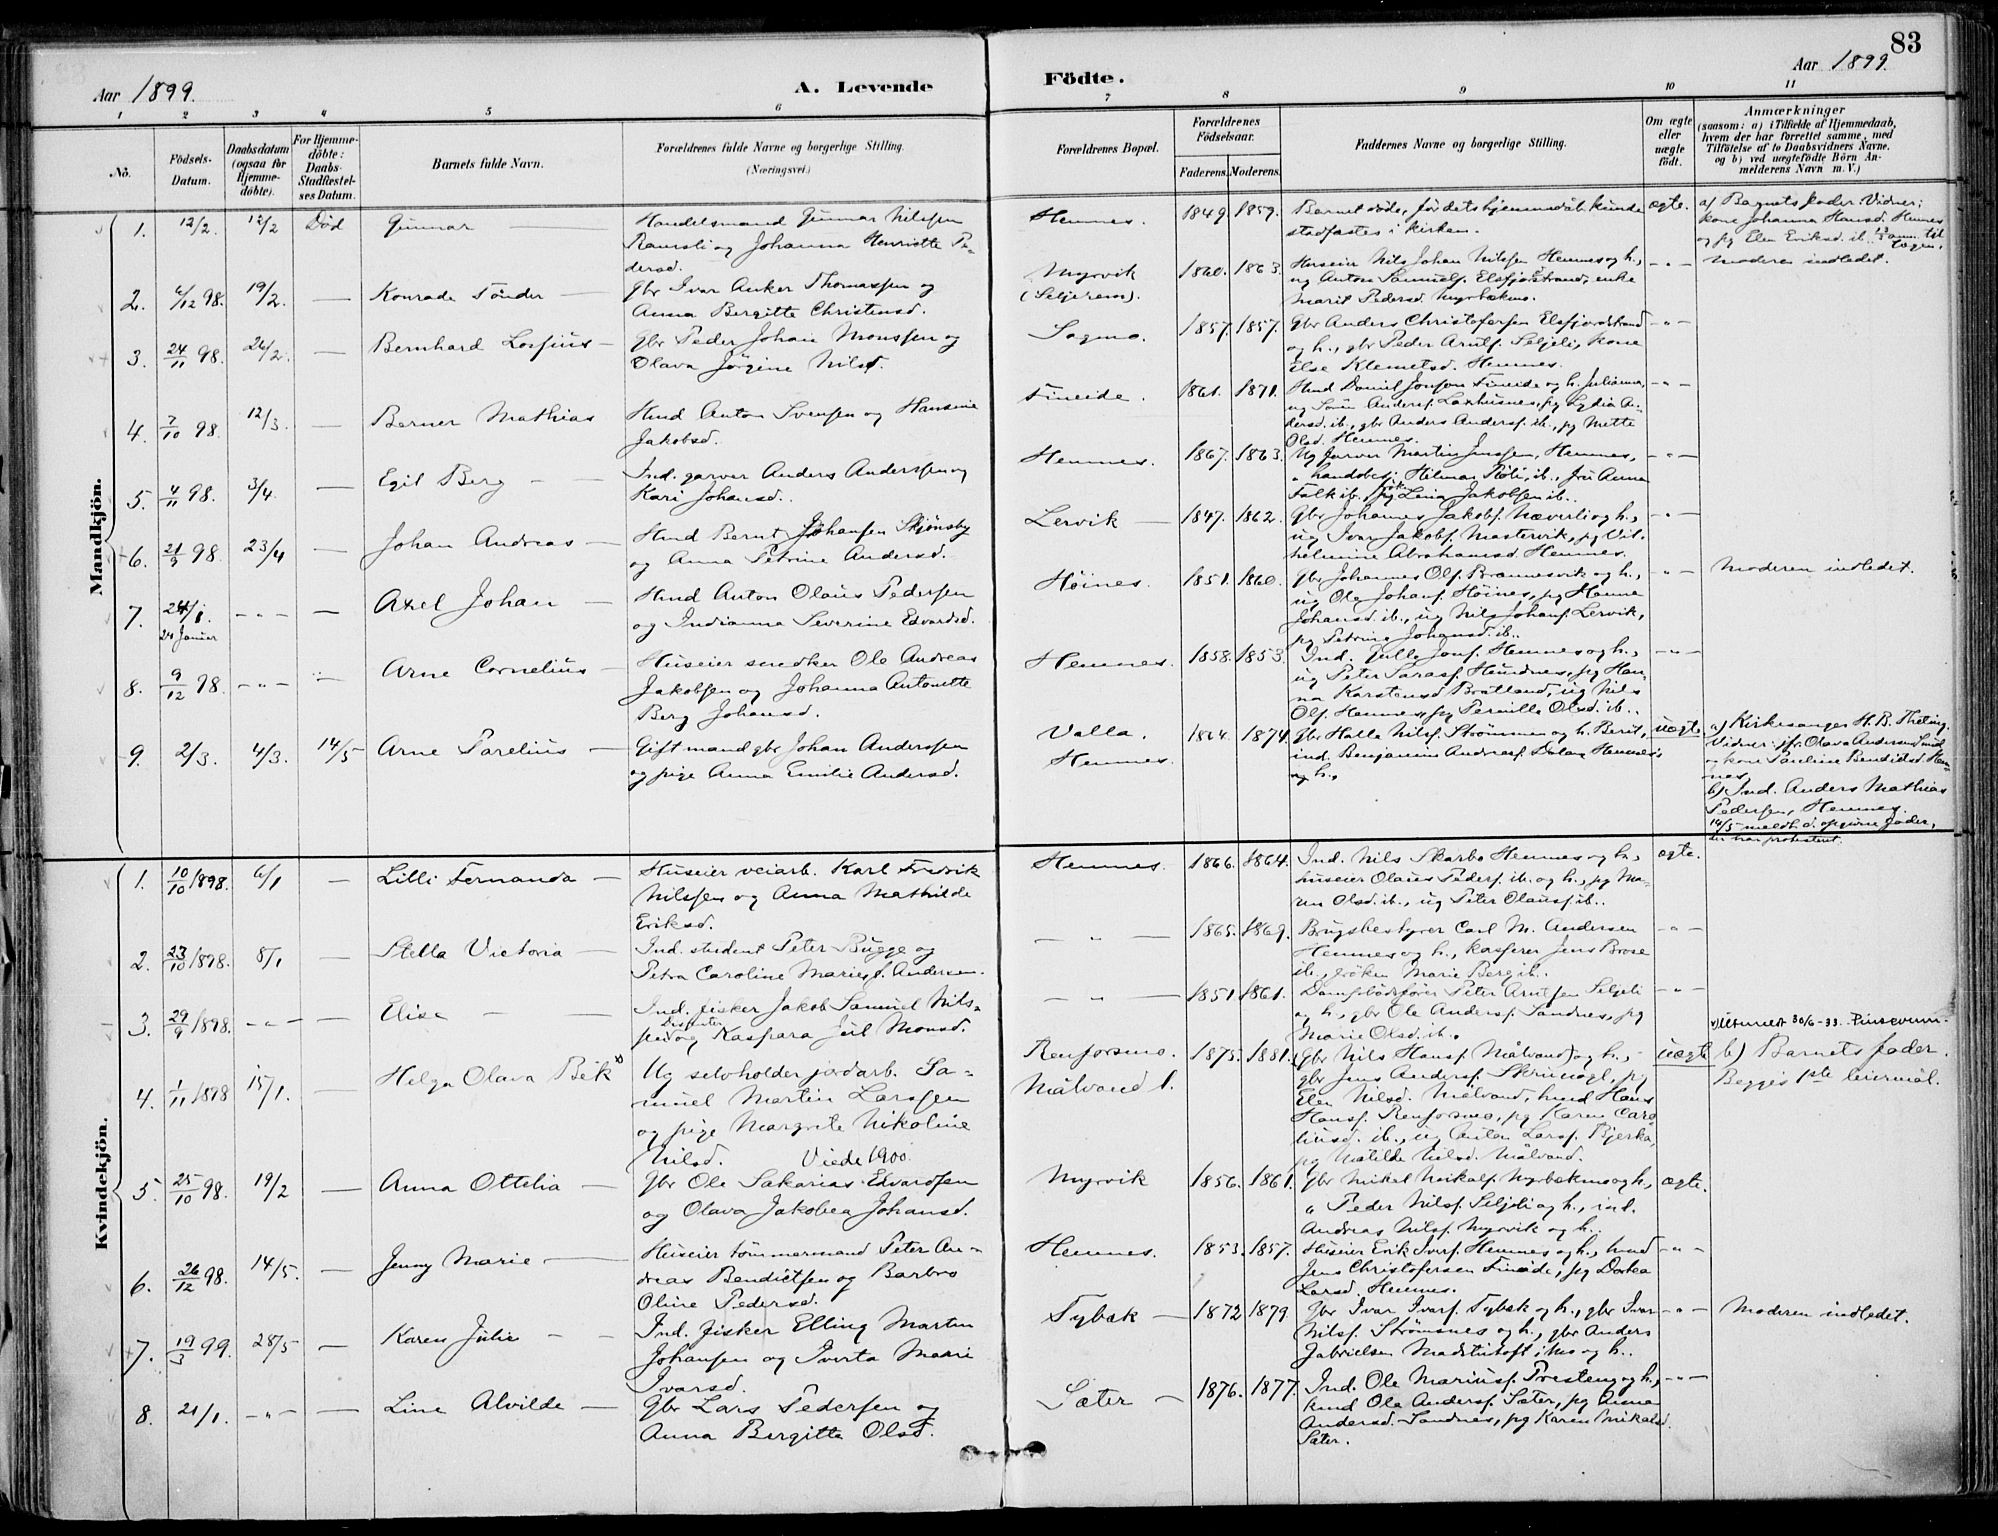 83
Aar 1899.
A. Levende
Födte.
Aar 1899.
1 2 3 4 5 6 7 8 9 10 11
No.
Födsels-
Datum.
Daabsdatum
(ogsaa för
Hjemme-
döbte).
For Hjemme-
döbte:
Daabs-
Stadfæstel-
ses Datum.
Barnets fulde Navn.
Forældrenes fulde Navne og borgerlige Stilling.
(Næringsvei.)
Forældrenes Bopæl.
Forældrenes
Födselsaar.
Faderens. Moderens.
Faddernes Navne og borgerlige Stilling.
Om ægte
eller
uægte
födt.
Anmærkninger
(saasom: a) i Tilfælde af Hjemmedaab,
hvem der har forrettet samme, med
Tilföielse af to Daabsvidners Navne.
og b) ved uægtefödte Börn An-
melderens Navn m. V.)
Mandkjön.
1. 12/2. 12/2 Död Gunnar
Handelsmand Gunnar Nilssen
Ramsli og Johanna Henriette Pe-
dersd.
Hemnes. 1849. 1859.
Barnet døde, før dets hjemmedåb kunde
stadfæstes i kirken.
ægte.
a) Barnets fader Vidner:
kone Johanna Hansd. Hemnes
og pg Elen Eriksd. ib.
2. 6/12 98. 19/2. — Konrade Tønder
Gbr Ivar Anker Thomassen og
Anna Bergitte Christensd.
Myrvik
(Seljerem).
1860. 1863.
Huseier Nils Johan Nilsen Hemnes og h.,
ug Anton Samuels. Elsfjordstrand, enke
Marit Pedersd. Myrbækmo.
-"-
Moderen indledet.
3. 24/11 98. 26/2. — Bernhard Lorfius
Gbr Peder Johan Monssen og
Olava Jørgine Nilsd.
Sagmo. 1857. 1857.
Gbr Anders Christofersen Elsfjordstrand
og h., gbr Peder Arntf. Seljeli, kone
Else Klemetsd. Hemnes.
-"-
4. 7/10 98. 12/3. — Berner Mathias
Hmd Anton Svensen og Hansine
Jakobsd.
Fineide. 1861. 1871.
Hmd Daniel Jonsen Fineide og h. Julianna,
ug Søren Andersf. Laxhusnes, pg Lydia An-
dersd. ib., gbr Anders Andersf. ib., pg Mette
Olsd. Hemnes.
-"-
5. 4/11 98. 3/4. — Egil Berg
Ind. garver Anders Anderssen og
Kari Johansd.
Hemnes. 1867. 1863.
Ug garver Martin Jenssen, Hemnes,
" handelsbetj. Hilmar Røli ib., fru Anna
Falk ib., frøk. Lina Jakobsen ib.
-"-
6. 21/9 98. 23/4 — Johan Andreas
Hmd Bernt Johansen Skjønsby
og Anna Petrine Andersd.
Lervik 1847. 1862.
Gbr Johannes Jakobf. Næverli og h.,
ug Ivar Jakobf. Mastervik, pg Vil-
helmine Abrahamsd. Hemnes.
-"-
7. 24/1.
24 Januar
-"- — Axel Johan
Hmd Anton Olaus Pedersen
og Indianna Severine Edvardsd.
Høines. 1851. 1860.
Gbr Johannes Olf. Brannesvik og h.,
ug Ole Johanf. Høines, pg Hanna
Johansd. ib., ug Nils Johanf. Lervik,
pg Petrine Johansd. ib.
-"- Moderen indledet.
8. 9/12 98. -"- Arne Cornelius
Huseier snedker Ole Andreas
Jakobsen og Johanna Antonette
Berg Johansd.
Hemnes. 1858. 1853.
Ind. Jonf. Hemnes og h.,
ug Peter Hundnes, pg Han-
na Karstensd Bratland, ug Nils
Olf. Hemnes, pg Pernille Olsd. ib.
-"-
9. 2/3. 4/3. 14/5 Arne Parelius
Gift mand gbr Johan Anderssen
og pige Anna Emilie Andersd.
Valla.
Hemnes.
1864. 1874.
Gbr Halle Nilsf. Strømmen og h. Berit,
ind. Benjamin Andreasf. Dalen Hemnes
og h.
uægte
a) Kirkesanger H. B. Theting.
Vidner: jfr. Olava Andersen
og kone Pauline Bendiksd. Hem-
nes
b) Ind. Anders Mathias
Pedersen, Hemnes.
14/5 meldt d. opgivne fader,
Kvindekjön.
1. 10/10 1898. 6/1 — Lilli Fernanda
Huseier veiarb. Karl Fredrik
Nilssen og Anna Mathilde
Eriksd.
Hemnes. 1866. 1864.
Ind. Nils Skarbo Hemnes og h.,
huseier Olaus Pedersf. ib. og h., pg Ma-
ren Olsd. ib., ug Peter Olausf. ib.
ægte.
2. 23/10 1898. 8/1 — Stella Victoria
Ind. student Peter Bugge og
Petra Caroline Marie f. Andersen.
— " — 1865. 1869.
Brugsbestyrer Carl M. Andersen
Hemnes og h., kasserer Jens Brose
ib., frøken Marie Berg ib.
-"-
3. 29/9 1898. -"- — Elise
Ind. fisker Jakob Samuel Nils-
sen og Kaspara Jul Monsd.
— " — 1851. 1861.
Dampbådsfører Peter Arntsen Seljeli
og h., gbr Ole Andersf. Sandnes, pg
Marie Olsd. ib.
-"-
x) Utmeldt 30/6-33. Pinseven.
4. 1/11 1898 15/1. — Helga Olava Bek x)
Ug selvholder jordarb. Sa-
muel Martin Larssen
og pige Margrete Nikoline
Nilsd. Viede 1900.
Renforsmo.
Målvand l.
1875. 1881.
Gbr Nils Hansf. Målvand og h.,
gbr Jens Andersf. , pg
Elen Nilsd. Målvand, hmd Hans
Hansf. Renforsmo, pg Karen Caro-
linsd. ib., ug Anton Larsf. Bjerka,
pg Matilde Nilsd. Målvand.
uægte
b) Barnets fader.
Begges 1ste leiermål.
5. 25/10 98. 19/2 — Anna Ottelia
Gbr Ole Sakarias Edvardsen
og Olava Jakobea Johansd.
Myrvik 1856. 1861.
Gbr Mikal Mikalf. Myrbækmo og h.,
" Peder Nilsf. Seljeli og h., ind.
Andreas Nilsf. Myrvik og h.
ægte.
6. 26/12 98. 14/5. — Jenny Marie
Huseier tømmermand Peter An-
dreas Bendiktsen og Barbro
Oline Pedersd.
Hemnes. 1853. 1857.
Huseier Erik Iverf. Hemnes og h., hmd
Jens Christofersen Fineide, pg Dorkea
Larsd. Hemnes.
-"-
7. 19/3 99. 28/5 — Karen Julie
Ind. fisker Elling Martin
Johansen og Iverta Marie
Ivarsd.
Fybæk 1872 1879.
Gbr Ivar Ivarf. Fybæk og h., gbr Ivar
Nilsf. Strømsnes og h., gbr Anders
Gabrielsen i Mo og h.
-"- Moderen indledet.
8. 21/1. -"- — Line Alvilde
Gbr Lars Pedersen og
Anna Bergitte Olsd.
Sæter 1876. 1877.
Ind. Ole Mariusf. Presteng og h.,
hmd Ole Andersf. Sæter, pg Anna
Andersd. Sandnes, pg Karen Mikalsd.
Sæter.
-"-